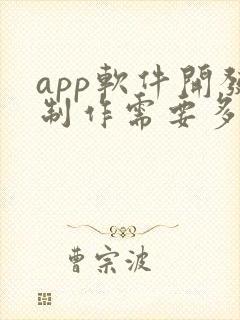 app軟件開發
制作需要多
曹宗波